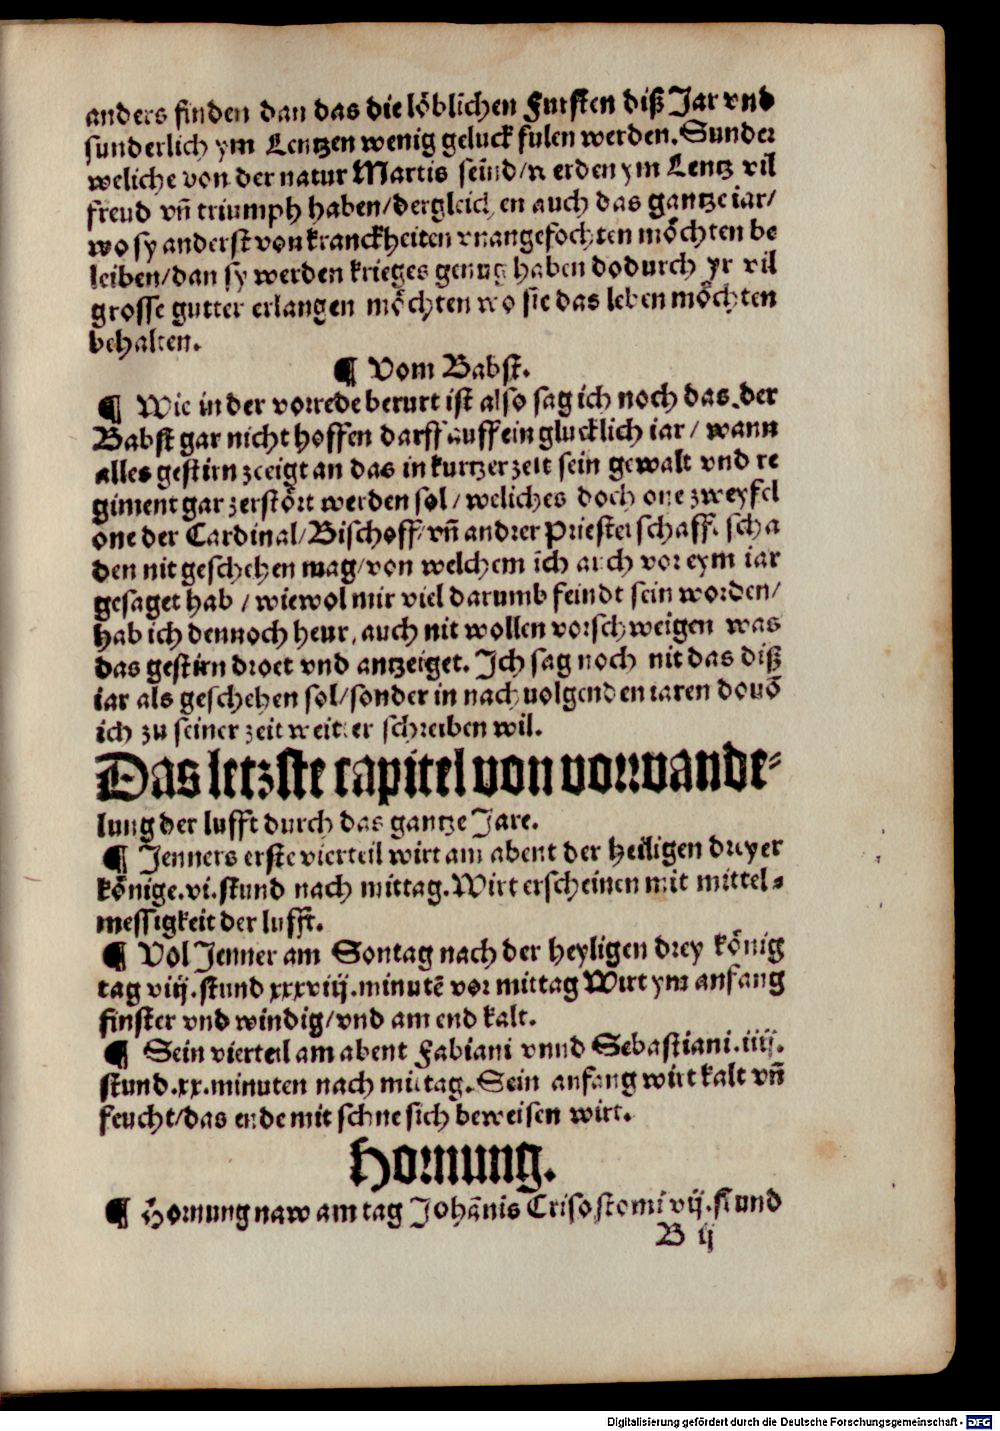 anders finden dan das die löblichen Fursten diß Jar vnd
sunderlich ym Lentzen wenig geluck fulen werden. Sunder
weliche von der natur Martis seind/werden ym Lentz vil
freud vñ triumph haben/dergleichen auch das gantze iar/
wo sy anderst von kranckheiten vnangefochten möchten be
leiben/dan sy werden krieges genug haben dodurch yr vil
grosse gutter erlangen möchten wo sie das leben möchten
behalten.
¶ Vom Babst.
¶ Wie in der vorrede berurt ist also sag ich noch das der
Babst gar nicht hoffen darff auff ein glucklich iar / wann
alles gestirn zceigt an das in kurtzer zeit sein gewalt vnd re
giment gar zerstört werden sol / weliches doch one zweyfel
one der Cardinal/Bischoff/vñ andrer Priesterschafft scha
den nit geschehen mag/von welchem ich auch vor eym iar
gesaget hab / wiewol mir viel darumb feindt sein worden/
hab ich dennoch heur, auch nit wollen vorschweigen was
das gestirn droet vnd antzeiget. Ich sag noch nit das diß
iar als geschehen sol/sonder in nachuolgenden iaren douõ
ich zu seiner zeit weitter schreiben wil.
Das letzste capitel von vorwande-
lung der lufft durch das gantze Jare.
¶ Jenners erste vierteil wirt am abent der heiligen dreyer
könige.vi.stund nach mittag. Wirt erscheinen mit mittel-
messigkeit der lufft.
¶ Vol Jenner am Sontag nach der heyligen drey könig
tag viij.stund xxxviij.minutẽ vor mittag Wirt ym anfang
finster vnd windig/vnd am end kalt.
¶ Sein vierteil am abent Fabiani vnnd Sebastiani.iiij.
stund.xx.minuten nach mittag. Sein anfang wirt kalt vñ
feucht/das ende mit schne sich beweisen wirt.
Hornung.
¶ Hornung naw am tag Johãnis Crisostomi vij.stund
B ij
Digitalisierung gefördert durch die Deutsche Forschungsgemeinschaft - DFG